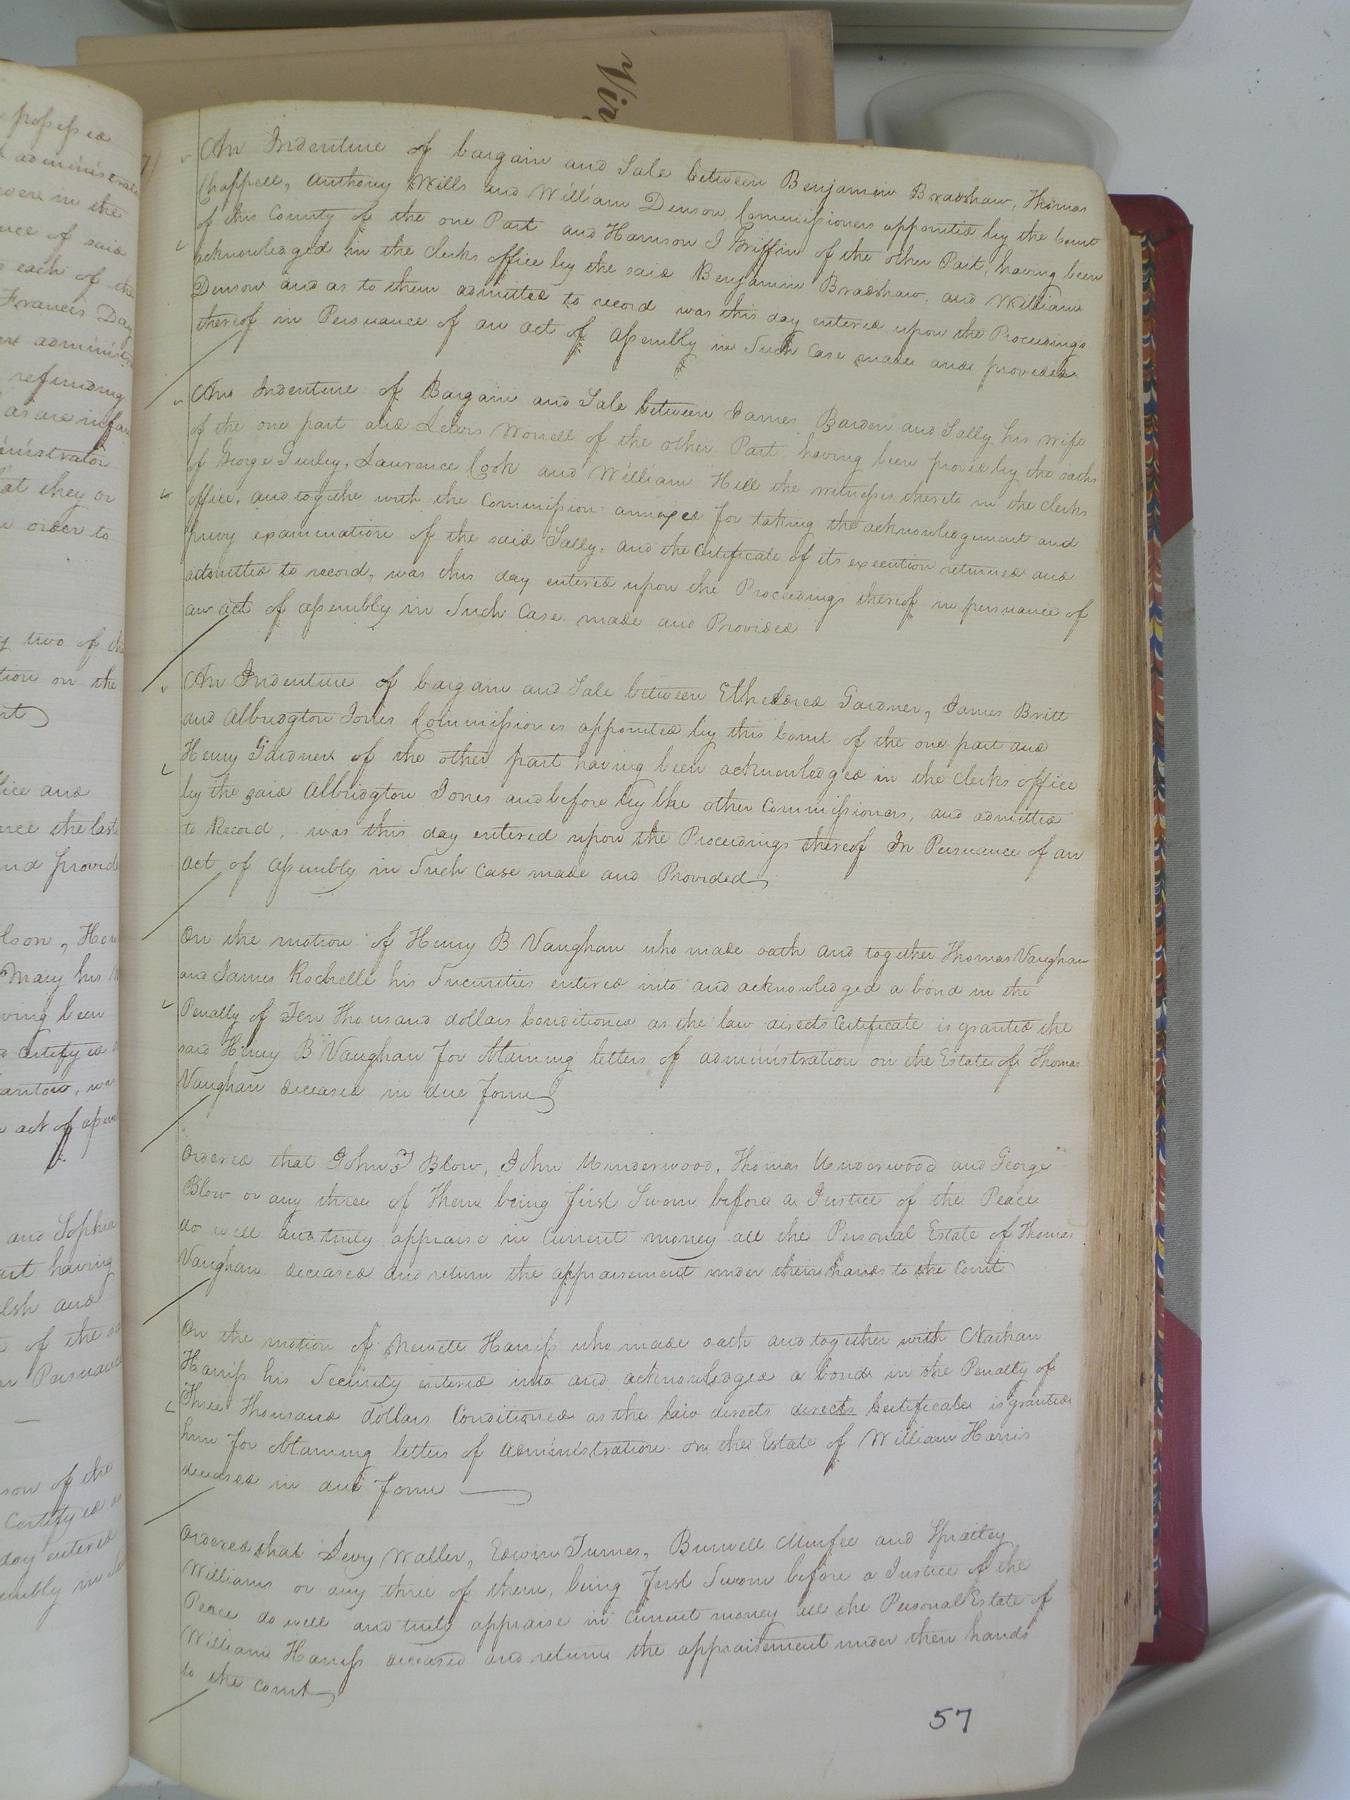 An Indenture of bargain and Sale between Benjamin Bradshaw, Thomas
Chappell, Anthony Mills and William Denson Commissioners appointed by the Court
of this County of the one Part and Harrison J Griffin of the other Part, having been
acknowledged in the clerks office by the said Benjamin Bradshaw, and William
Denson and as to them admitted to record was this day entered upon the Proceedings
thereof in Persuance of an act of Assembly in Such Case made and provided
An Indenture of Bargain and Sale between James Barden and Sally his wife
of the one part and Lewis Worrell of the other Part having been proved by the oaths
of George Gurley, Laurence Cook and William Hill the witnesses thereto in the clerks
office, and togethe with the Commission annexed for taking the acknowledgement and
privy examination of the said Sally, and the Certificate of its execution returned and
admitted to record, was this day entered upon the Proceedings thereof in persuance of
an act of assembly in Such Case made and Provided
An Indenture of bargain and Sale between Etheldred Gardner, James Britt
and Albridgton Jones Commissioners appointed by this Court of the one part and
Henry Gardner of the other part having been acknowledged in the clerks office
by the said Albridgton Jones and before by the other Commissioners, and admitted
to Record, was this day entered upon the Proceedings thereof In Persuance of an
act of Assembly in Such Case made and Provided
On the motion of Henry B Vaughan who made oath and together Thomas Vaughan
and James Rochelle his Securities entered into and acknowledged a bond in the
Penalty of Ten Thousand dollars Conditioned as the law directs Certificate is granted the
said Henry B Vaughan for obtaining letters of administration on the Estate of Thomas
Vaughan deceased in due form
Ordered that John T Blow, John Underwood, Thomas Underwood and George
Blow or any three of Them being first Sworn before a Justice of the Peace
do well and truly appraise in Current money all the Personal Estate of Thomas
Vaughan deceased and return the appraisement under their hands to the Court
On the motion of Newitt Harriss who made oath and together with Nathan
Harriss his Security entered into and acknowledged a bond in the Penalty of
Three Thousand dollars Conditioned as the law directs directs Certificate is granted
him for obtaining letters of administration on the Estate of William Harris
deceased in due form
Ordered that Levy Waller, Edwin Turner, Burwell Murfee and Spratley
Williams or any three of them, being first Sworn before a Justice of the
Peace do well and truly appraise in Current money all the Personal Estate of
William Harriss deceased and return the appraisement under their hands
to the Court
57